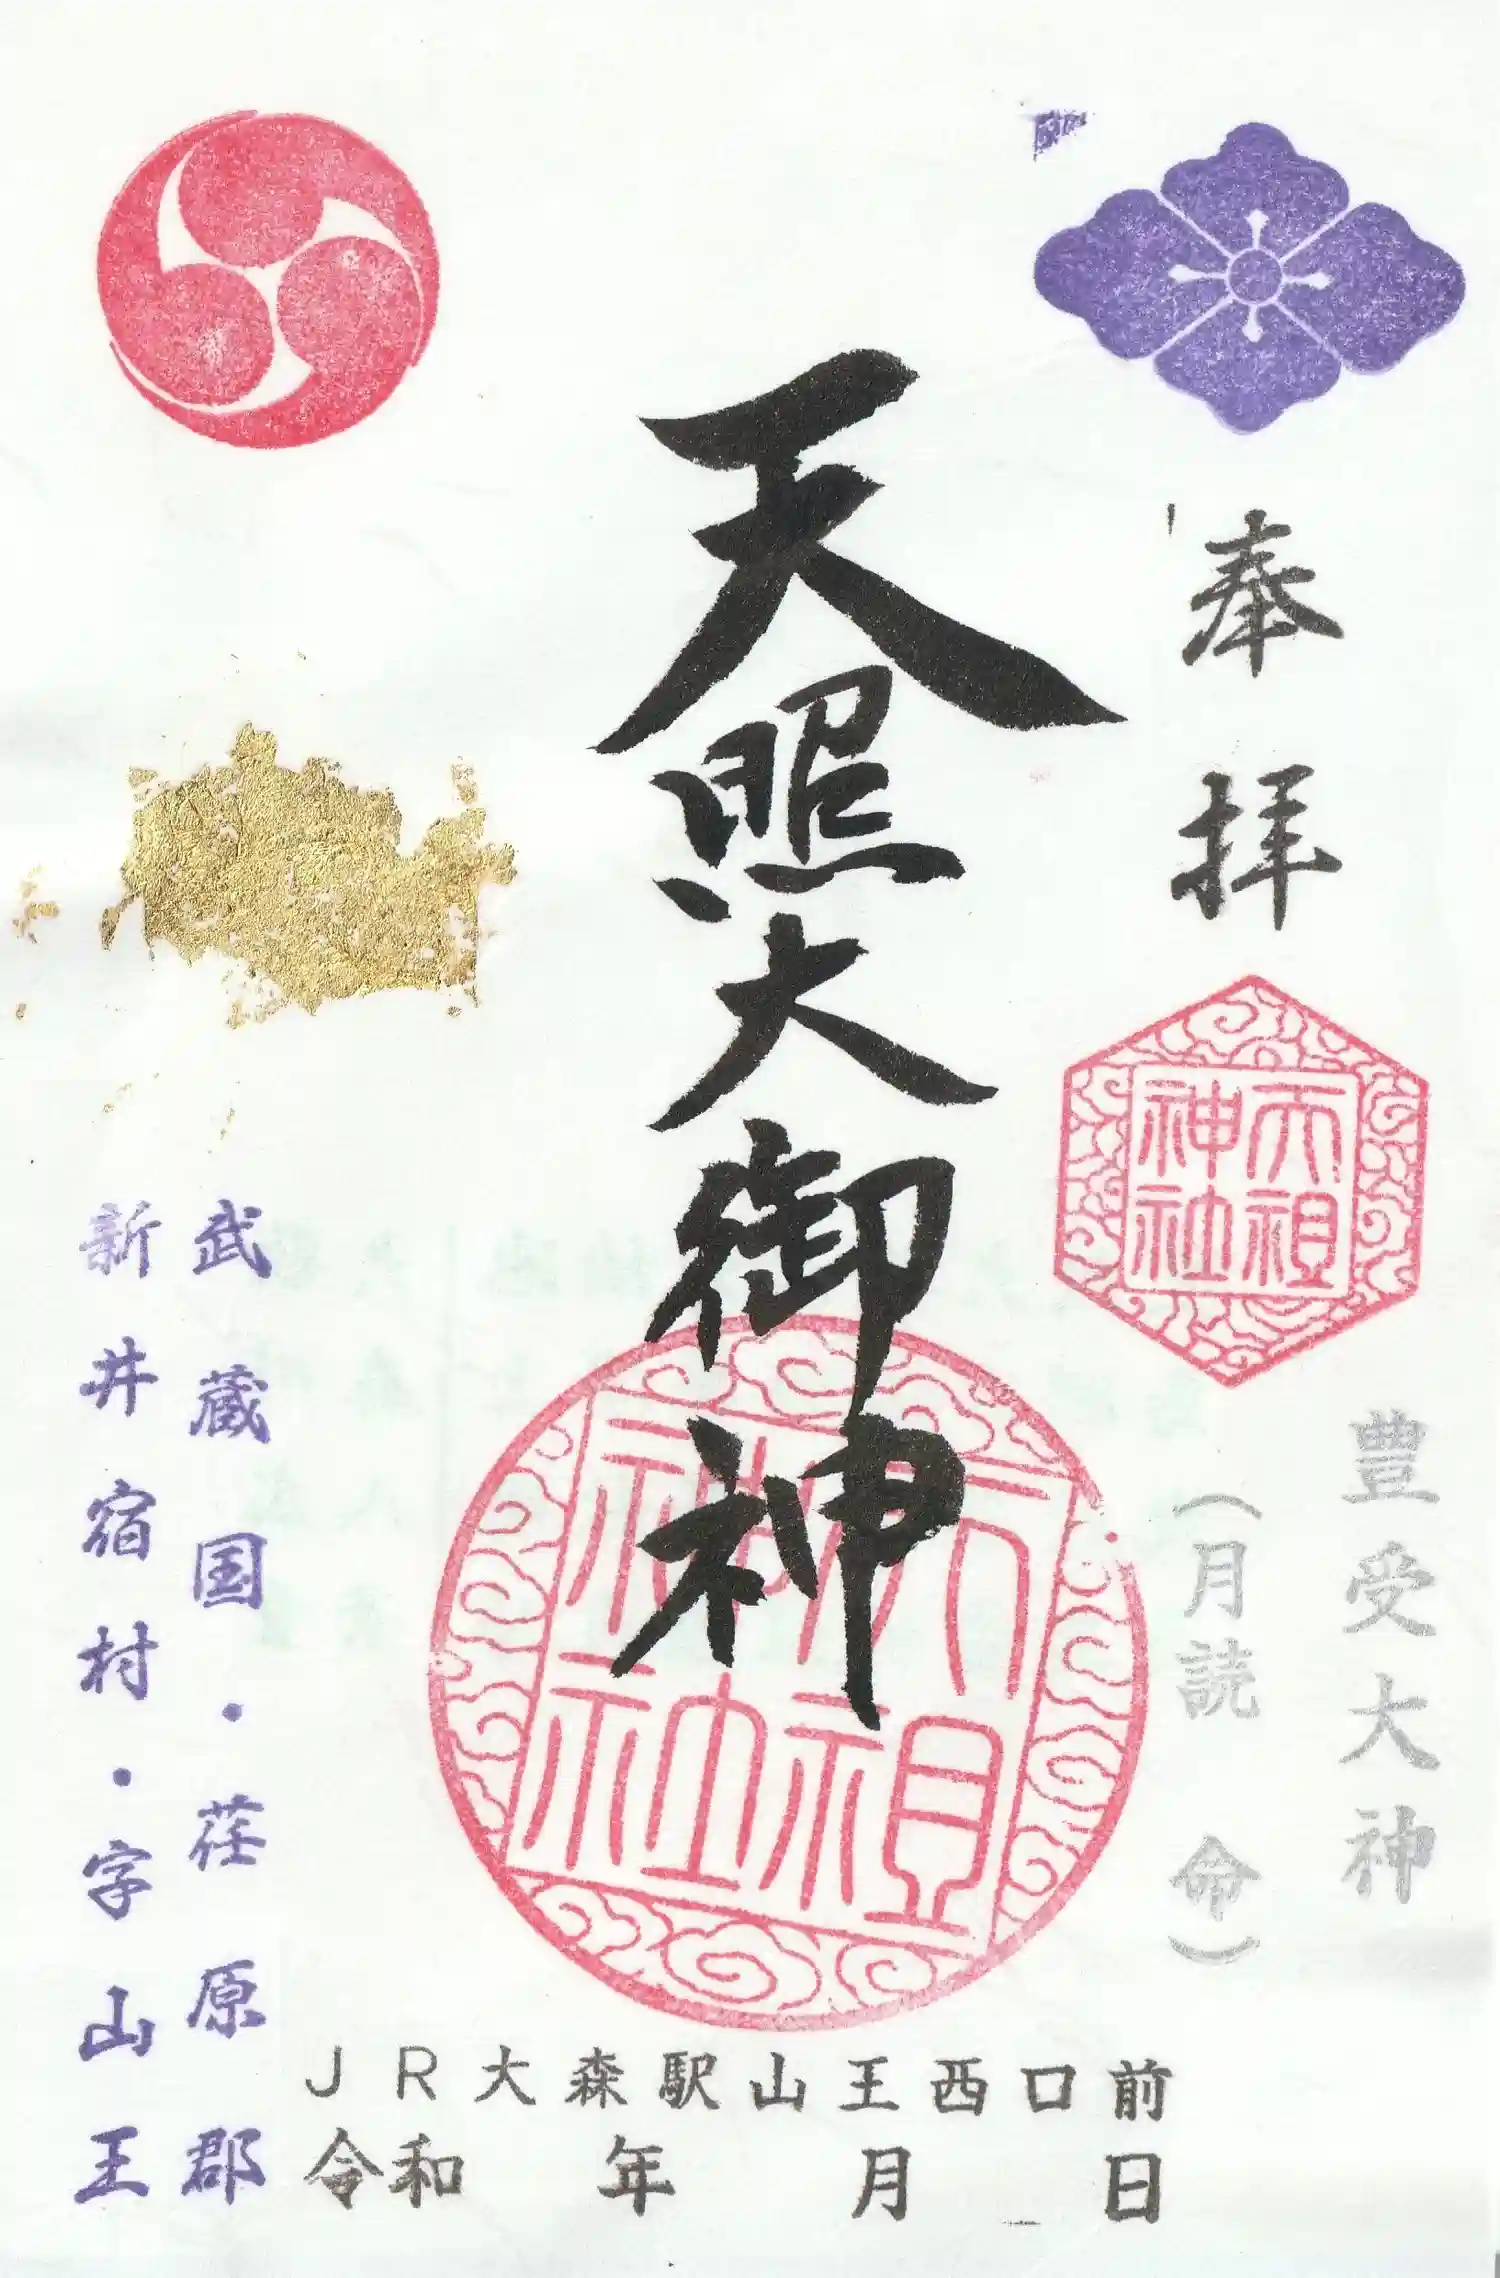 奉拝
天祖神社
豊受大神
（月読 命）
天照大御神
天祖神社
武蔵国・荏原郡
新井宿村・字山王
JR大森駅山王西口前
令和 年 月 日